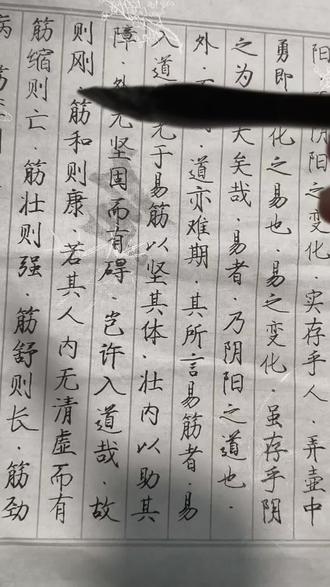 阳阴阳之变化.实存乎人.弄壶中
勇即化之易也.易之变化.虽存乎阴
之为大矣哉.易者.乃阴阳之道也.
外.道亦难期.其所言易筋者.易
入道于易筋以坚其体.壮内以助其
障.外无坚固而有碍.岂许入道哉.故
则刚.筋和则康.若其人内无清虚而有
筋缩则亡.筋壮则强.筋舒则长.筋劲
病